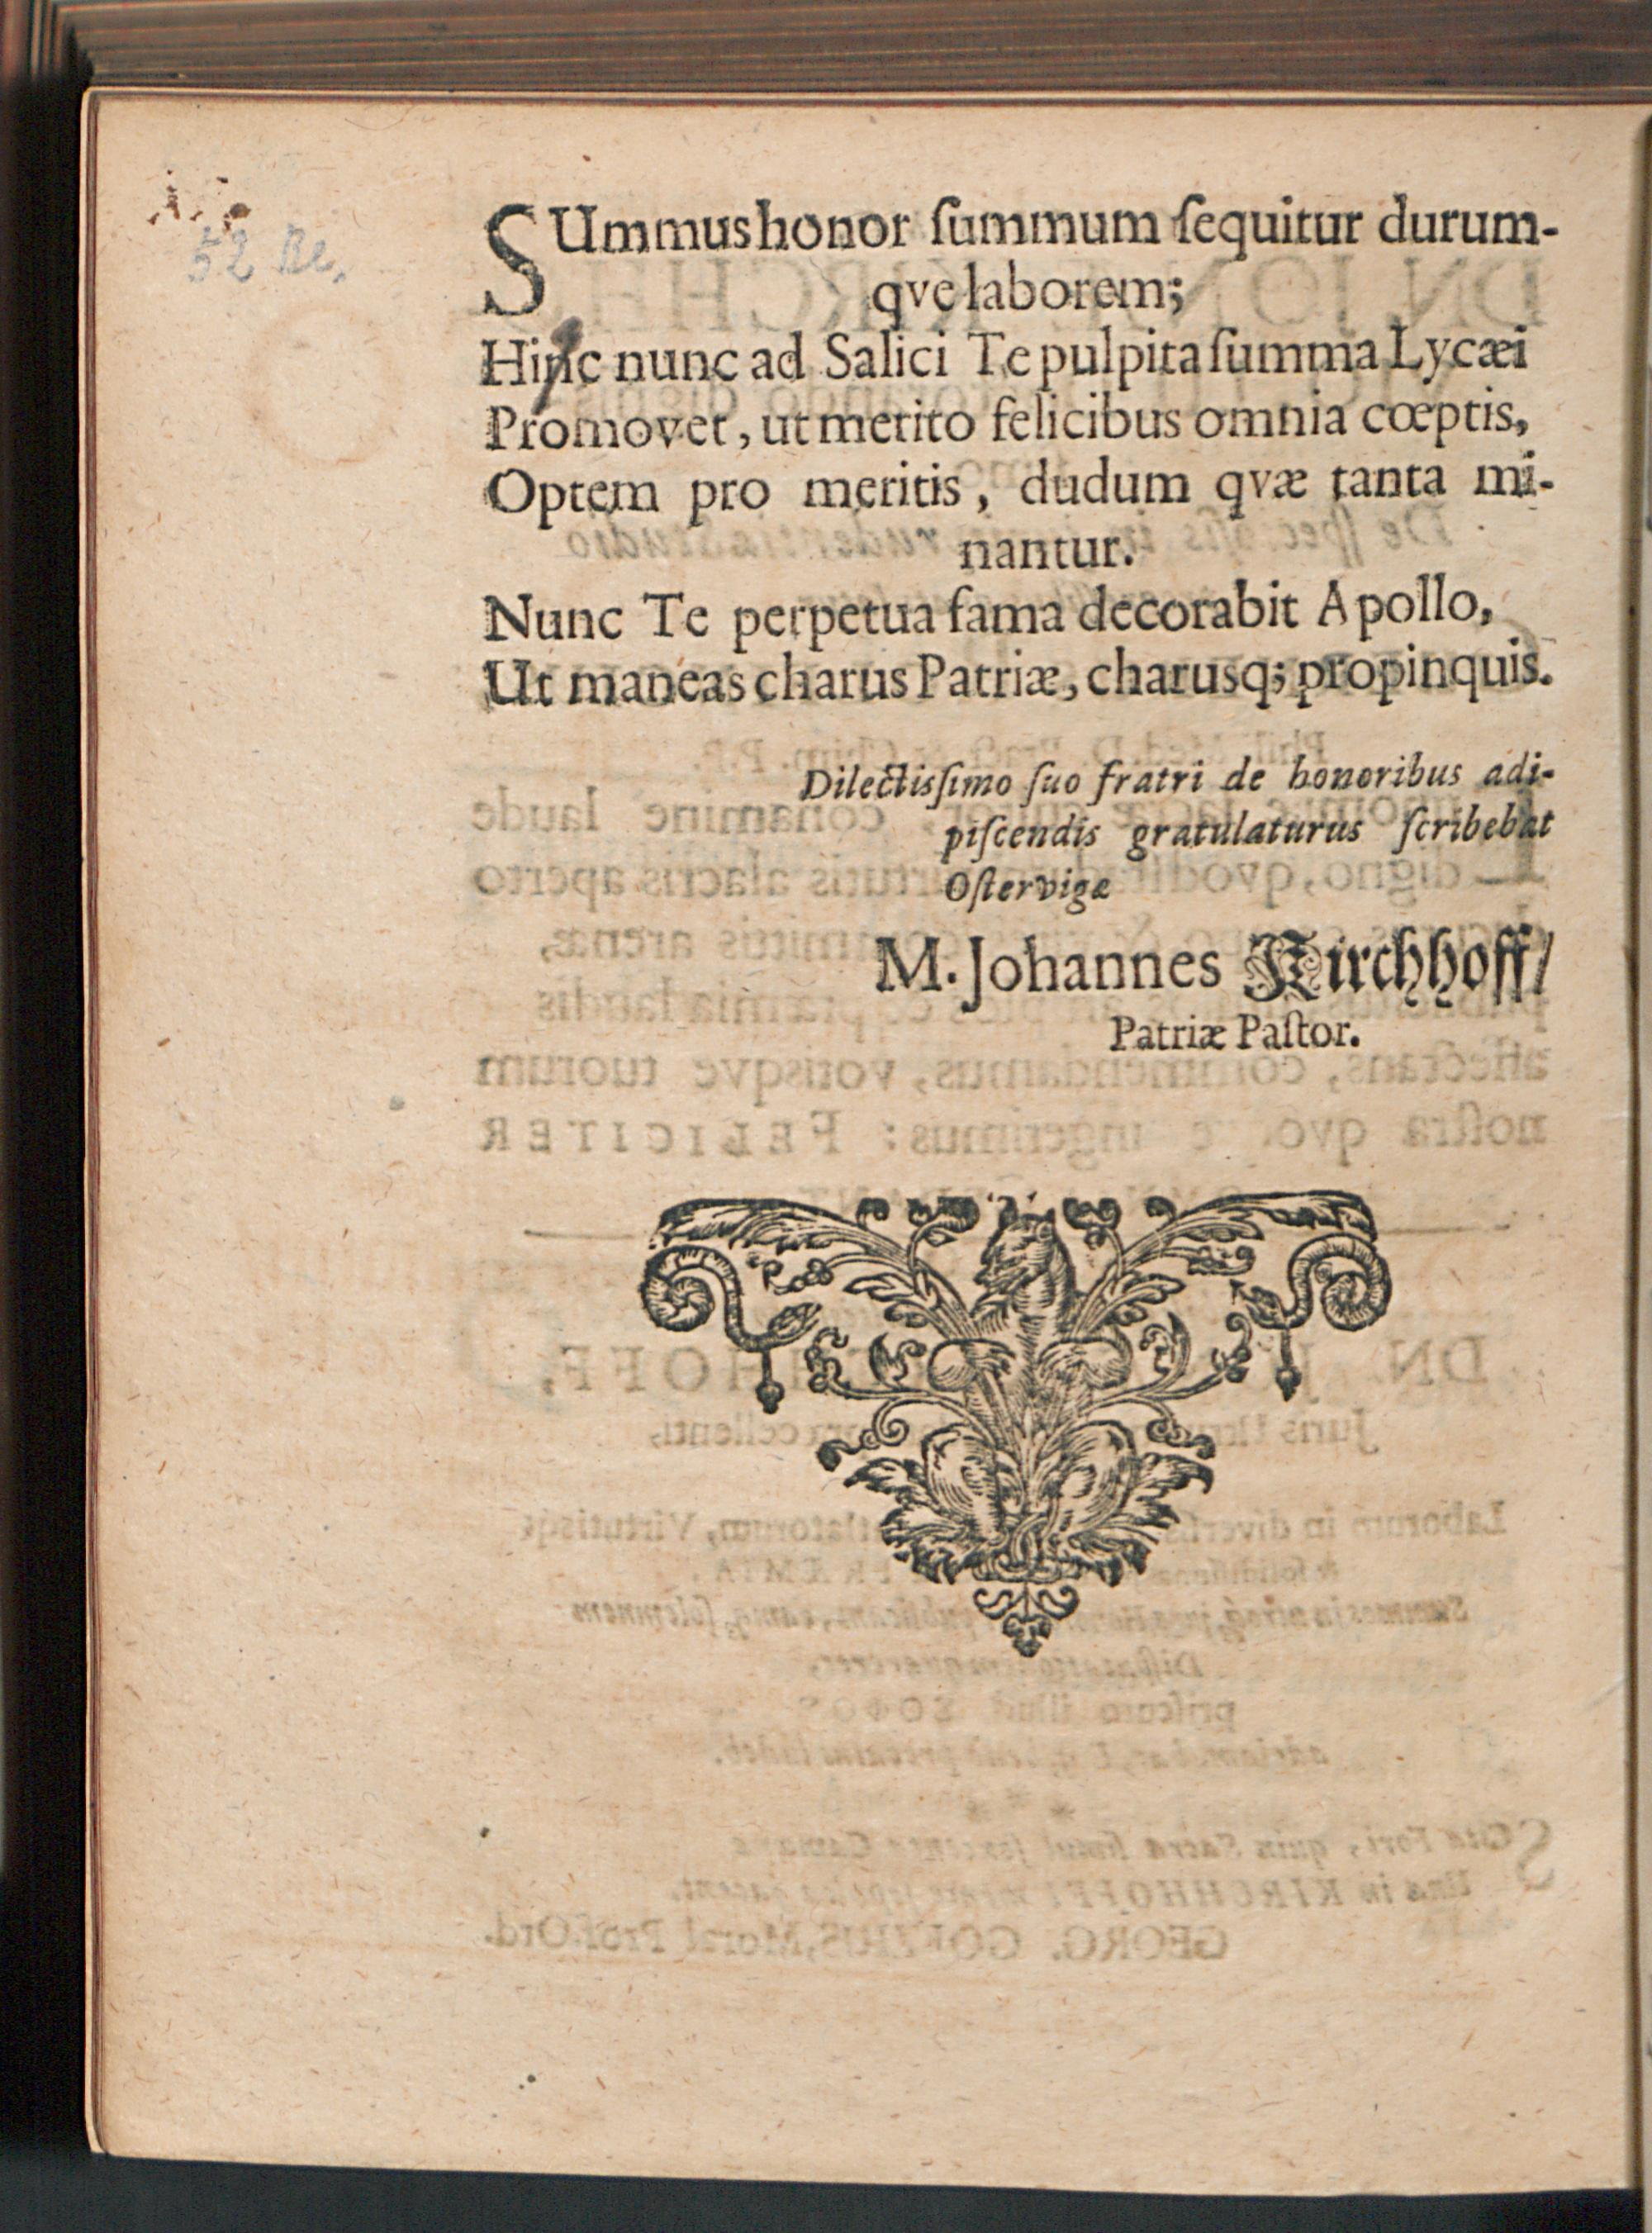 52 Be.
SUmmus honor ſummum ſequitur durum-
qve laborem;
Hinc nunc ad Salici Te pulpita ſumma Lycæi
Promovet, ut merito felicibus omnia cœptis,
Optem pro meritis, dudum qvæ tanta mi-
nantur.
Nunc Te perpetua fama decorabit Apollo,
Ut maneas charus Patriæ, charusq; propinquis.
Dilectisſimo ſuo fratri de honoribus adi-
piſcendis gratulaturus ſcribebat
Oſtervigæ
M. Johannes Kirchhoff/
Patriæ Paſtor.